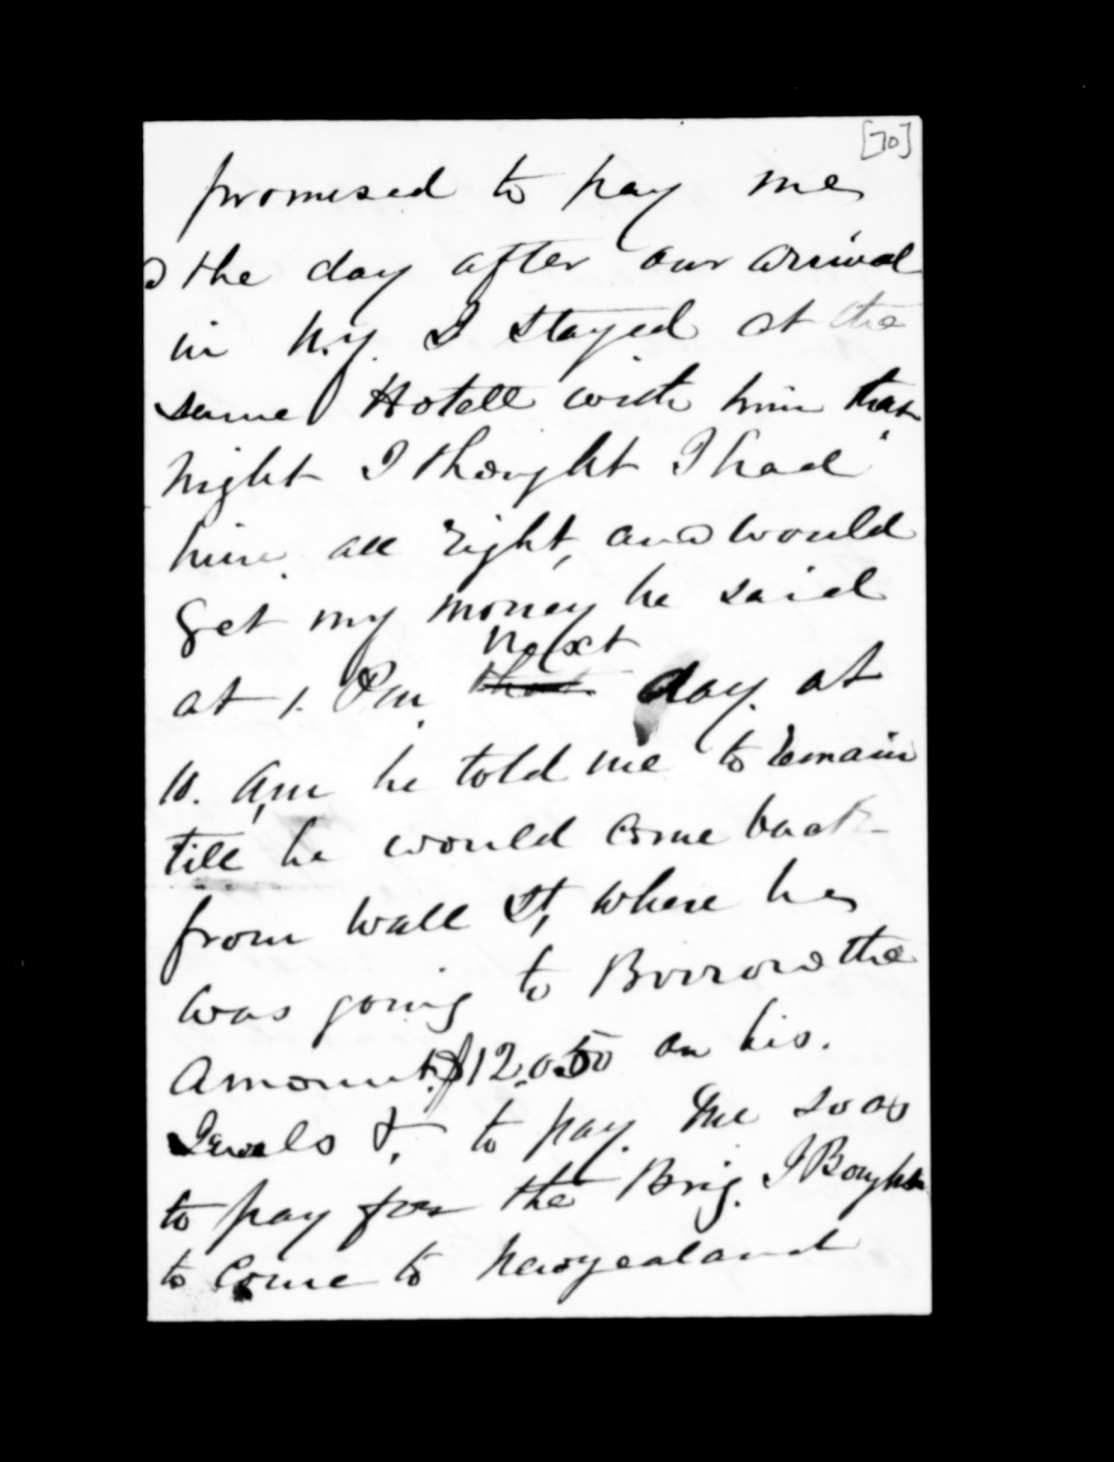 [70]
promised to pay me
the day after our arrival
in N.Y. I stayed at the
same Hotell with him that
night I thought I had
him all right, and would
get my money he said
next
at 1. Pm that day. at
10. am he told me to remain
till he would come back
from Wall St, where he
was going to Borrow the
Amount $12,050 on his.
Jewels &, to pay me so as
to pay for the Brig. I Bought
to come to Newzealand